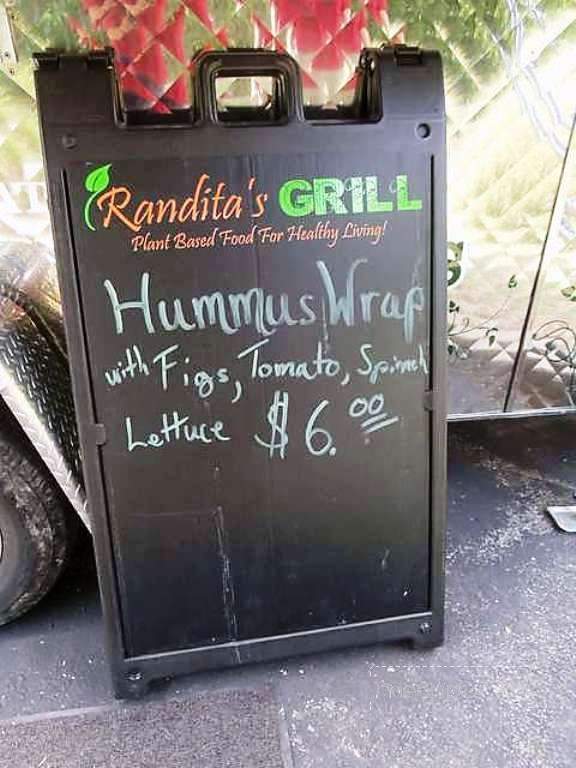 Randita's GRILL
Plant Based Food For Healthy Living!
Hummus Wrap
with Figs, Tomato, Spinach
Lettuce $6.00